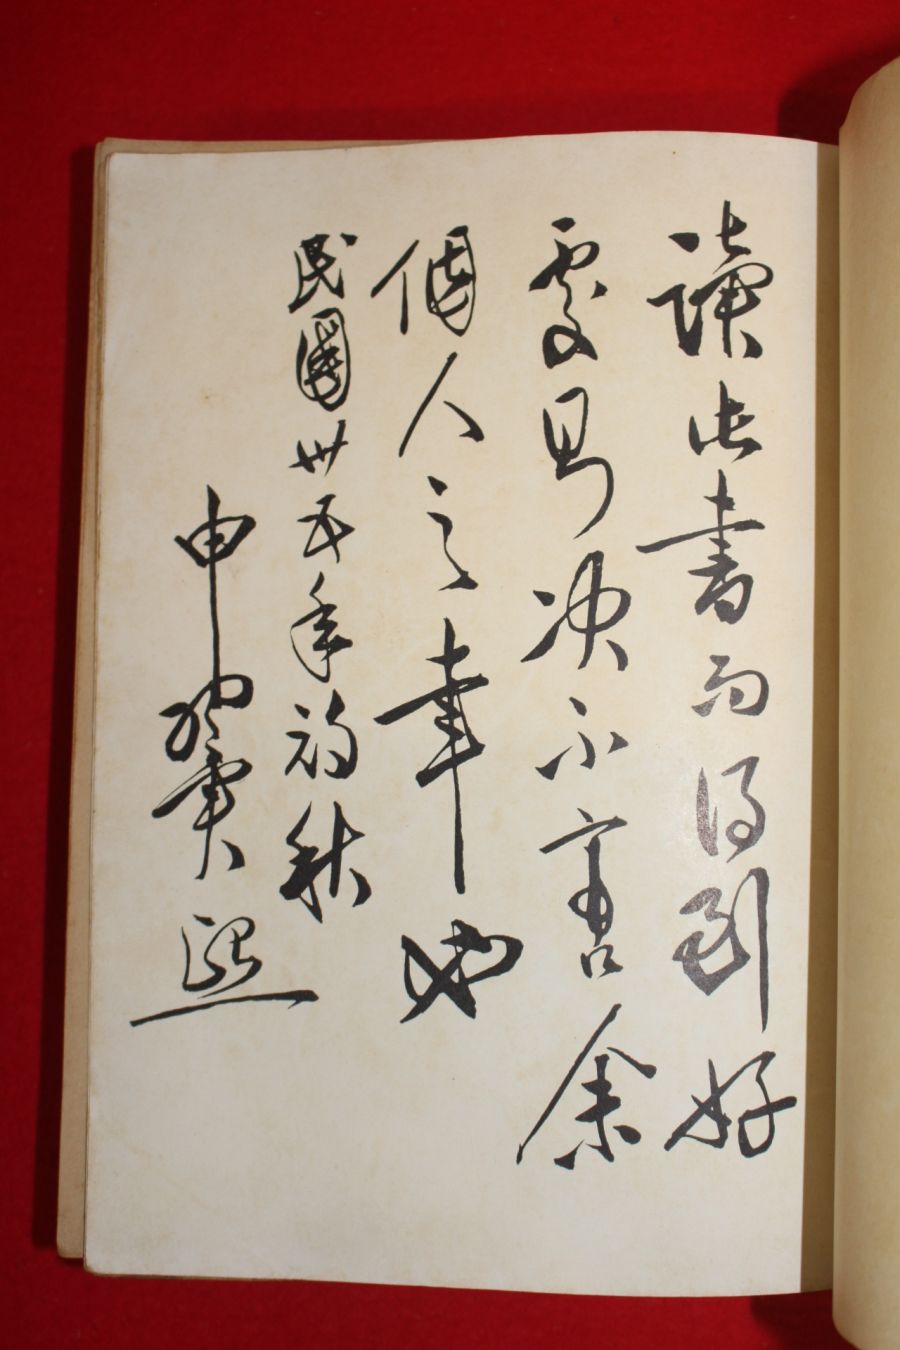 讀此書而得到好
處是決不啻余
個人之幸也
民國卅五年初秋
申翼熙